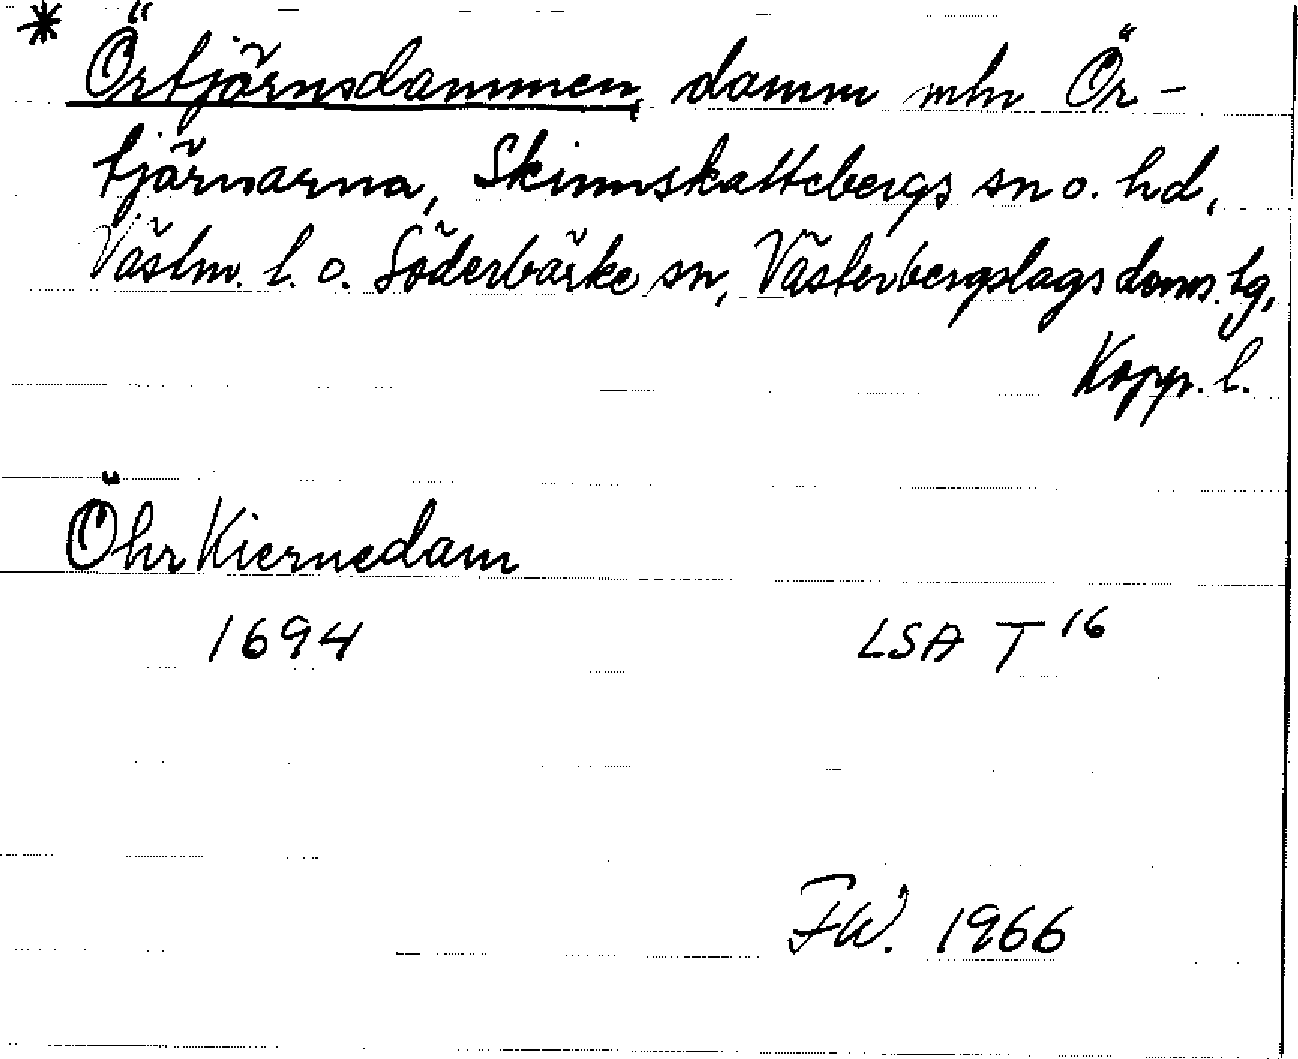 * Örtjärnsdammen, damm mln Ör-
tjärnarna, Skinnskattebergs sn o. hd,
Västm. l. o. Söderbärke sn, Västerbergslags doms. tg,
Kopp. l.
Öhr Kiernedam
1694 LSA T 16
FW. 1966